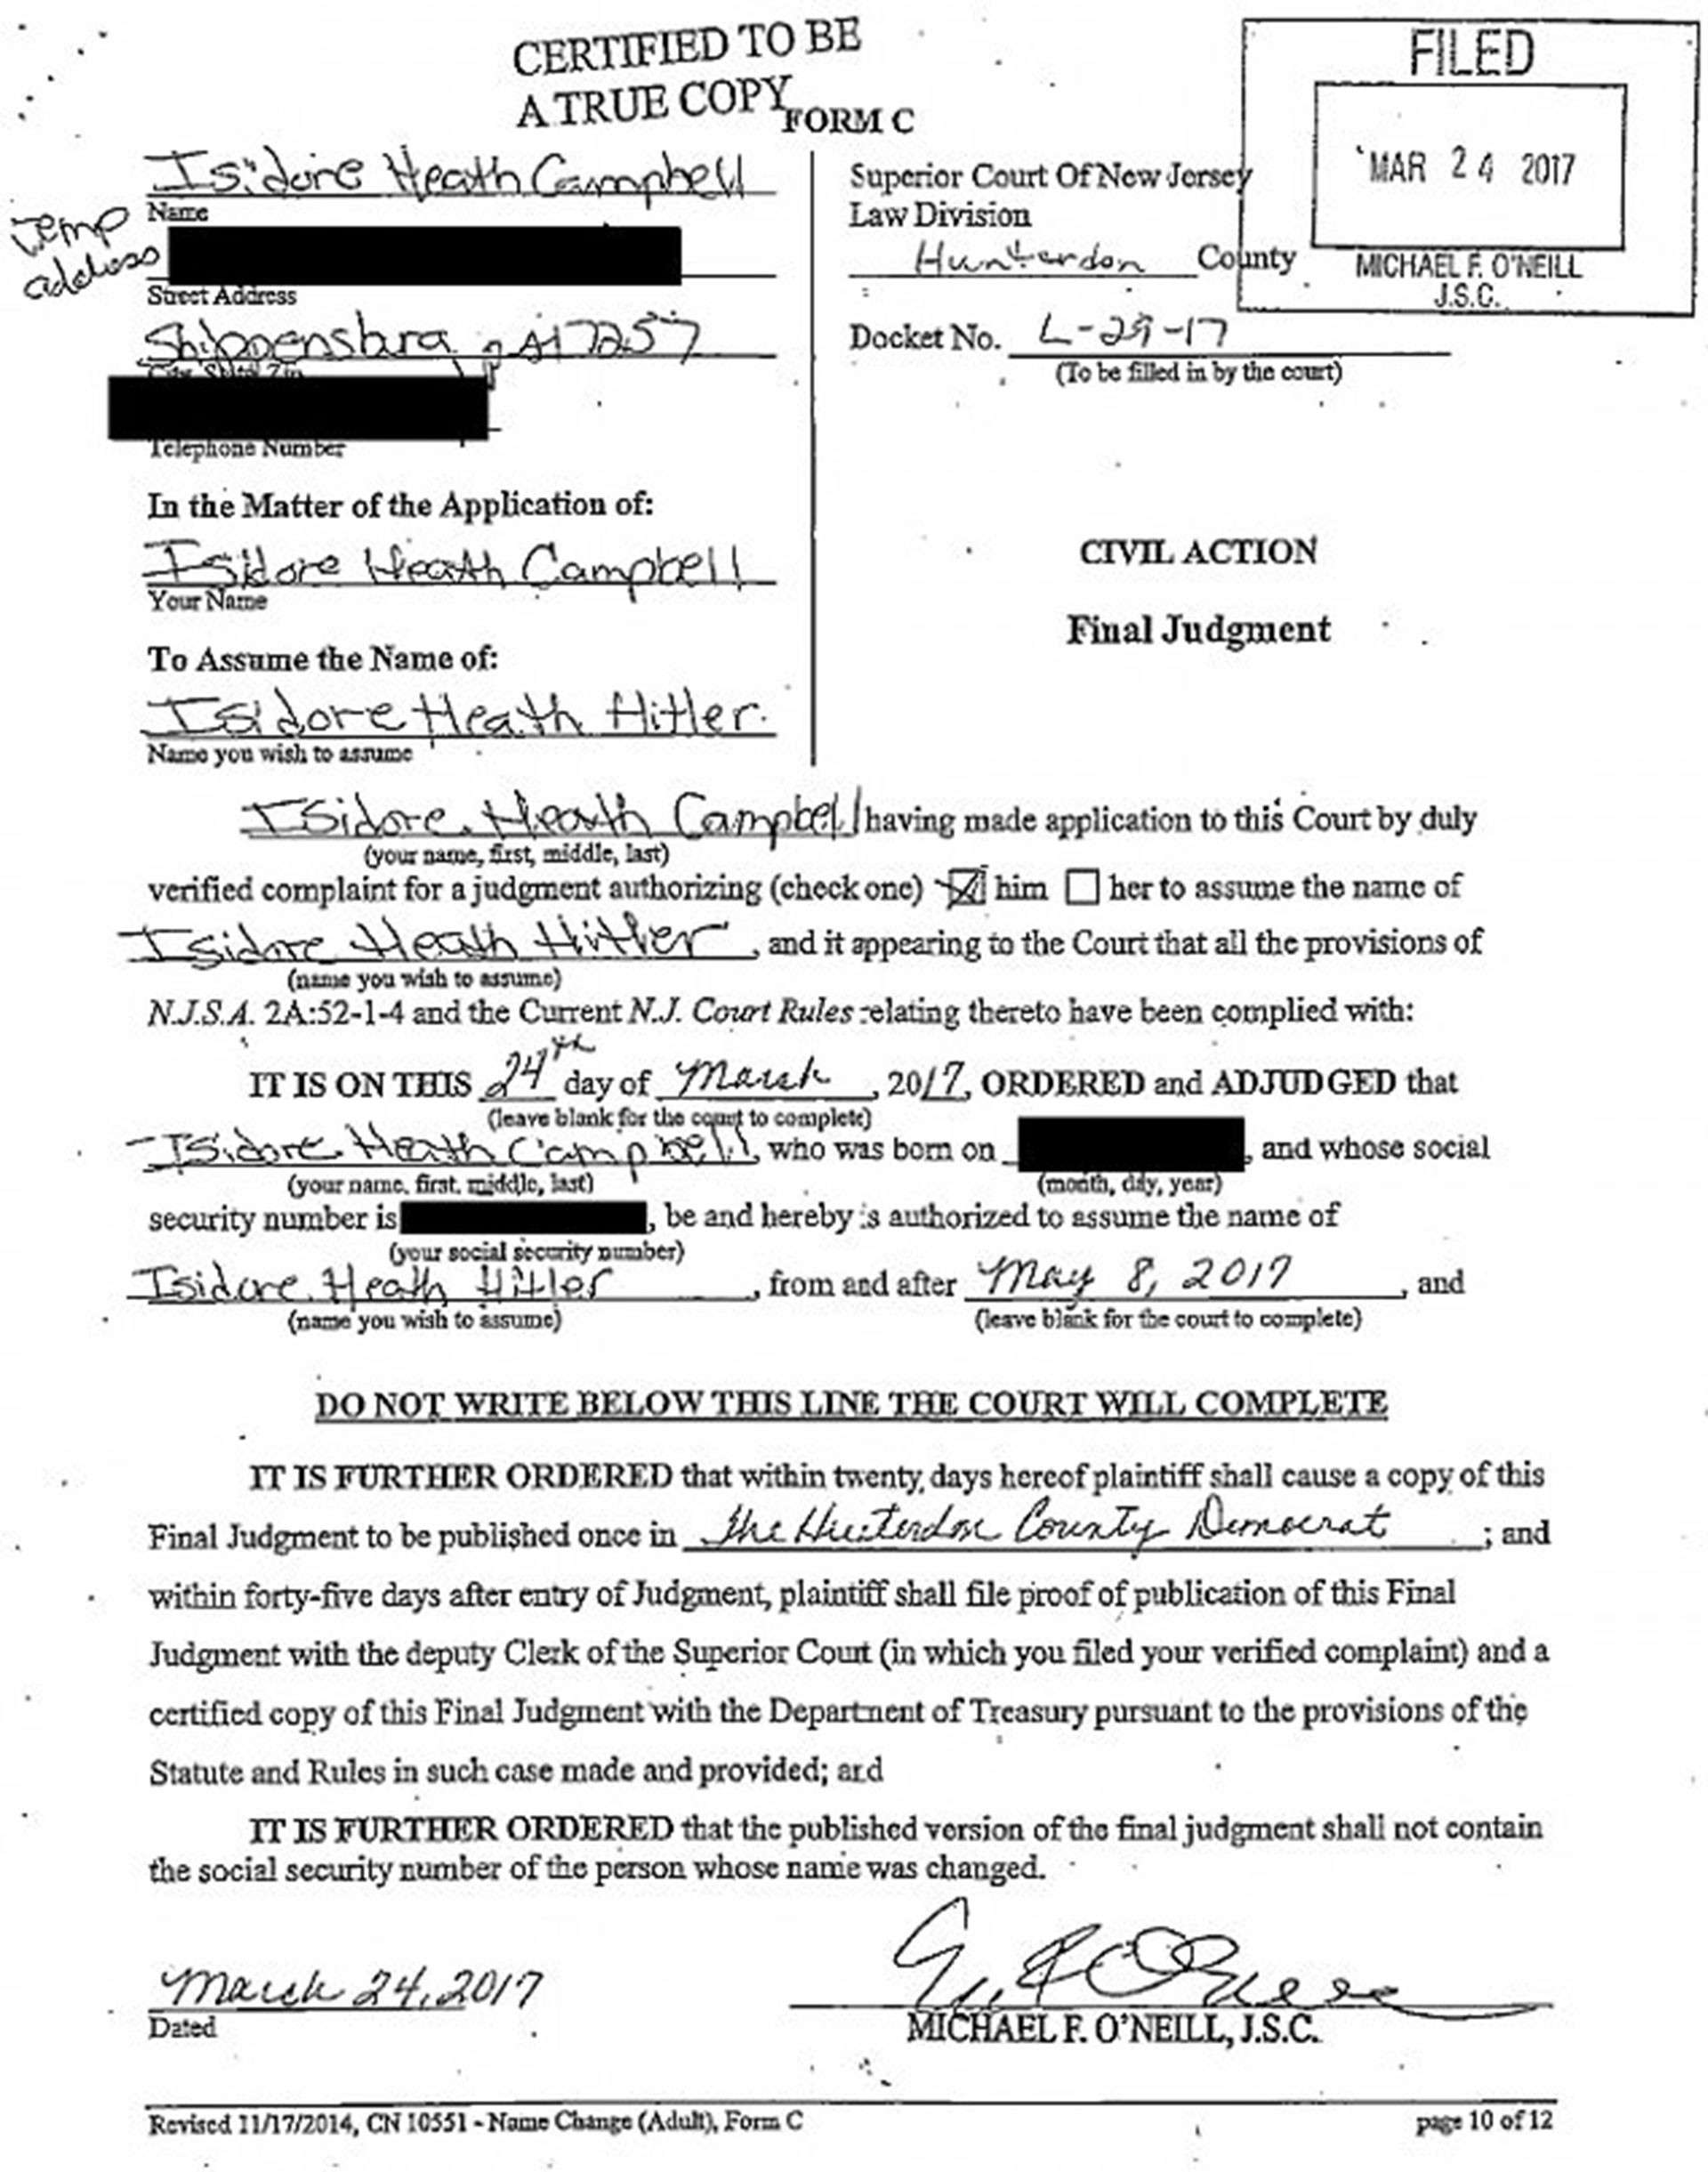 CERTIFIED TO BE
A TRUE COPY
FORM C
FILED
MAR 24 2017
MICHAEL F. O'NEILL
J.S.C.
Isidore Heath Campbell
Name
temp
address
Street Address
Shippensburg PA 17257
City, State, Zip
Telephone Number
Superior Court Of New Jersey
Law Division
Hunterdon County
Docket No. L-29-17
(To be filled in by the court)
In the Matter of the Application of:
Isidore Heath Campbell
Your Name
To Assume the Name of:
Isidore Heath Hitler
Name you wish to assume
CIVIL ACTION
Final Judgment
Isidore Heath Campbell having made application to this Court by duly
(your name, first, middle, last)
verified complaint for a judgment authorizing (check one) ☒ him ☐ her to assume the name of
Isidore Heath Hitler, and it appearing to the Court that all the provisions of
(name you wish to assume)
N.J.S.A. 2A:52-1-4 and the Current N.J. Court Rules relating thereto have been complied with:
IT IS ON THIS 24th day of March, 2017, ORDERED and ADJUDGED that
(leave blank for the court to complete)
Isidore Heath Campbell, who was born on , and whose social
(your name, first, middle, last) (month, day, year)
security number is , be and hereby is authorized to assume the name of
(your social security number)
Isidore Heath Hitler, from and after May 8, 2017, and
(name you wish to assume) (leave blank for the court to complete)
DO NOT WRITE BELOW THIS LINE THE COURT WILL COMPLETE
IT IS FURTHER ORDERED that within twenty days hereof plaintiff shall cause a copy of this
Final Judgment to be published once in The Hunterdon County Democrat ; and
within forty-five days after entry of Judgment, plaintiff shall file proof of publication of this Final
Judgment with the deputy Clerk of the Superior Court (in which you filed your verified complaint) and a
certified copy of this Final Judgment with the Department of Treasury pursuant to the provisions of the
Statute and Rules in such case made and provided; and
IT IS FURTHER ORDERED that the published version of the final judgment shall not contain
the social security number of the person whose name was changed.
March 24, 2017
Dated
MICHAEL F. O'NEILL, J.S.C.
Revised 11/17/2014, CN 10551 - Name Change (Adult), Form C page 10 of 12